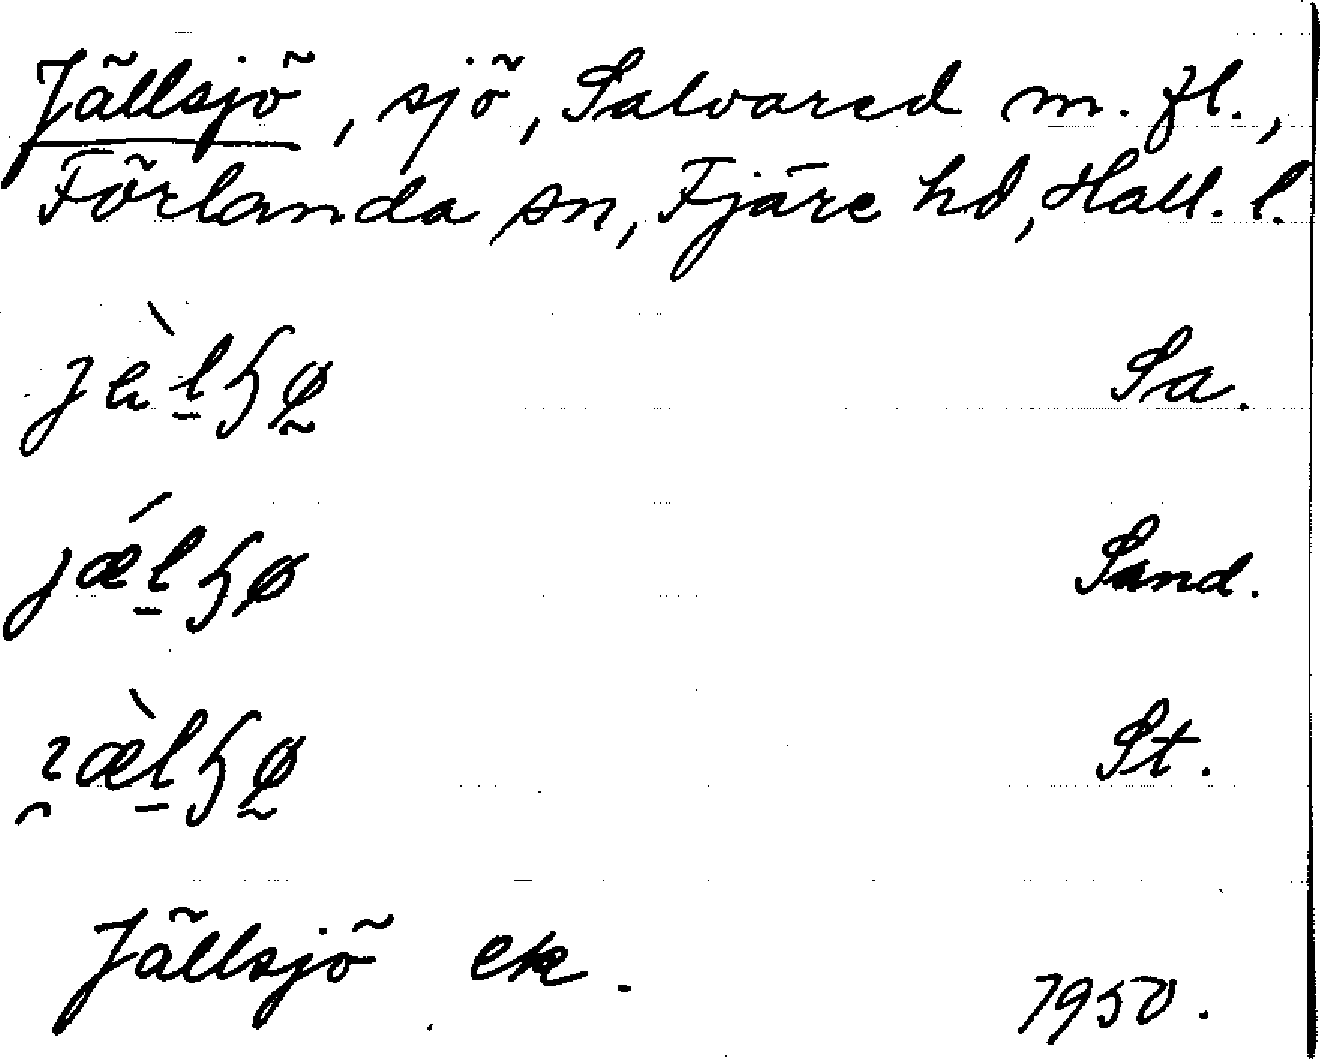 Jällsjö, sjö, Salvared m. fl.,
Förlanda sn, Fjäre hd, Hall. l.
Sa.
Sand.
St.
Jällsjö ek.
1950.